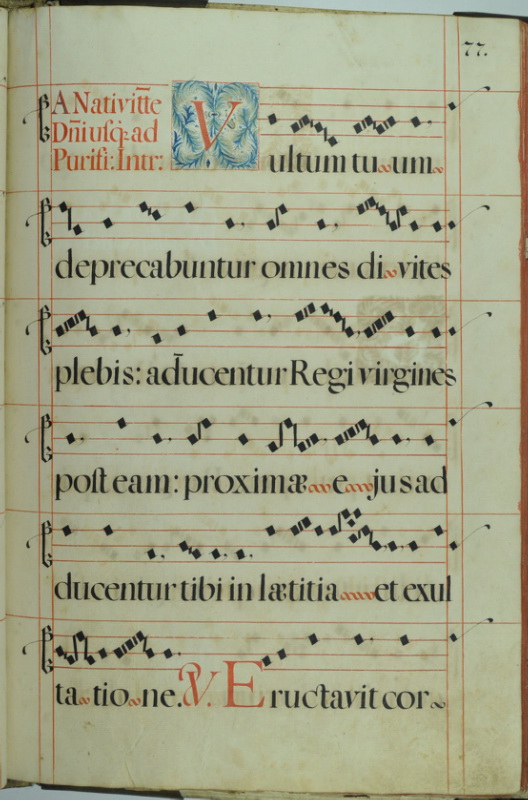 77.
A Nativit̄te
Dn̄i usq; ad
Purifi: Intr:
Vultum tu um
deprecabuntur omnes di vites
plebis: ad̄ucentur Regi virgines
post eam: proximæ e jus ad
ducentur tibi in lætitia et exul
ta tio ne. V. Eructavit cor